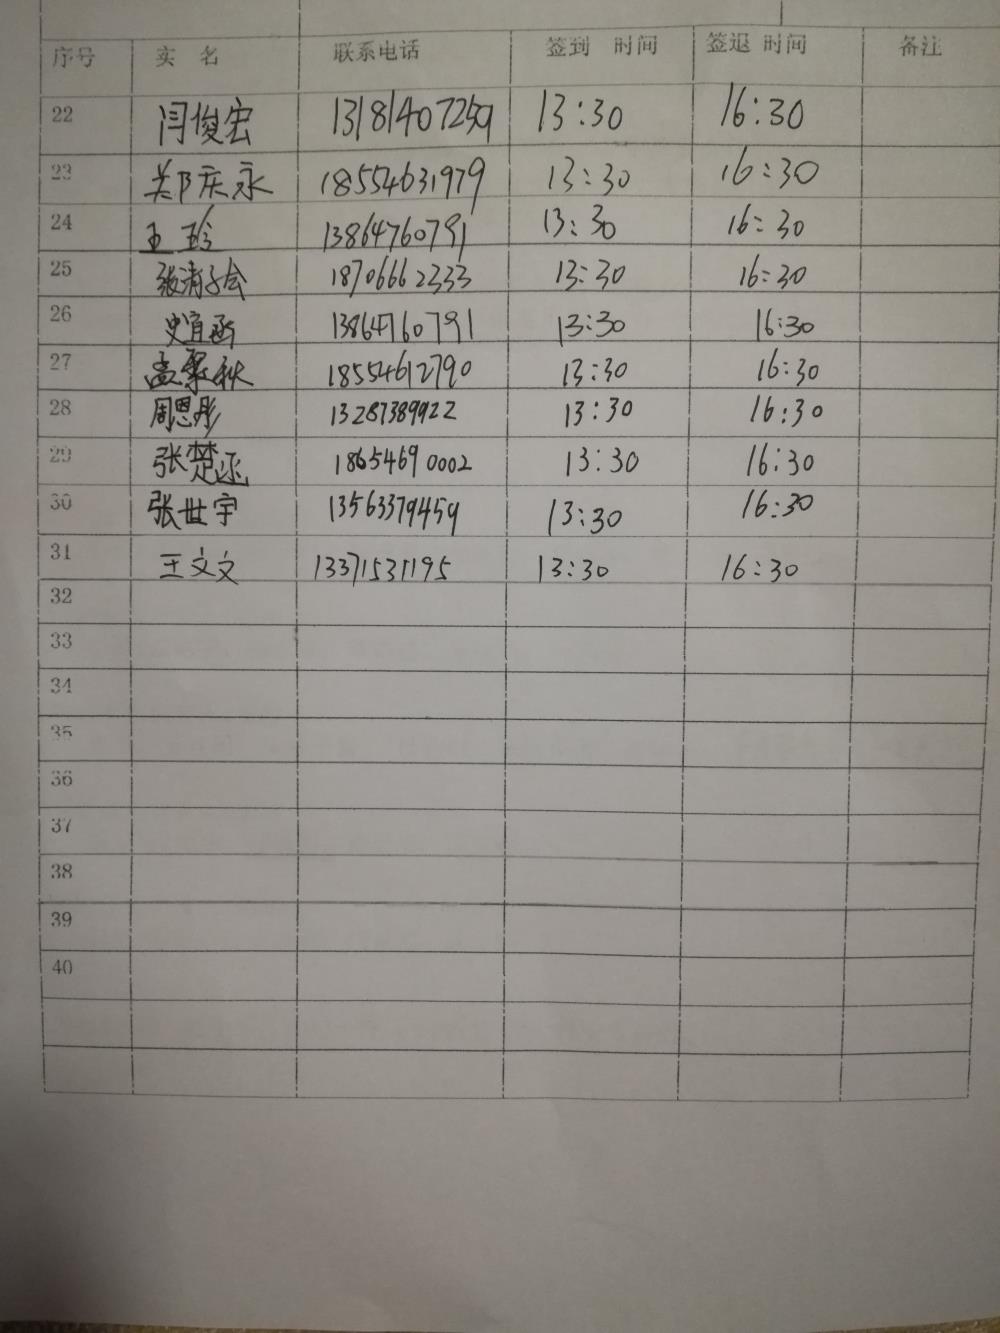 序号 实 名 联系电话 签到 时间 签退 时间 备注
22 闫俊宏 13181407259 13:30 16:30
23 郑庆永 18554631979 13:30 16:30
24 王珍 13864760791 13:30 16:30
25 张清子会 18706662333 13:30 16:30
26 史宜函 13864760791 13:30 16:30
27 孟秋 18554612790 13:30 16:30
28 周恩彤 13287389922 13:30 16:30
29 张楚函 18654690002 13:30 16:30
30 张世宇 13563379459 13:30 16:30
31 王文文 13371531195 13:30 16:30
32
33
34
35
36
37
38
39
40